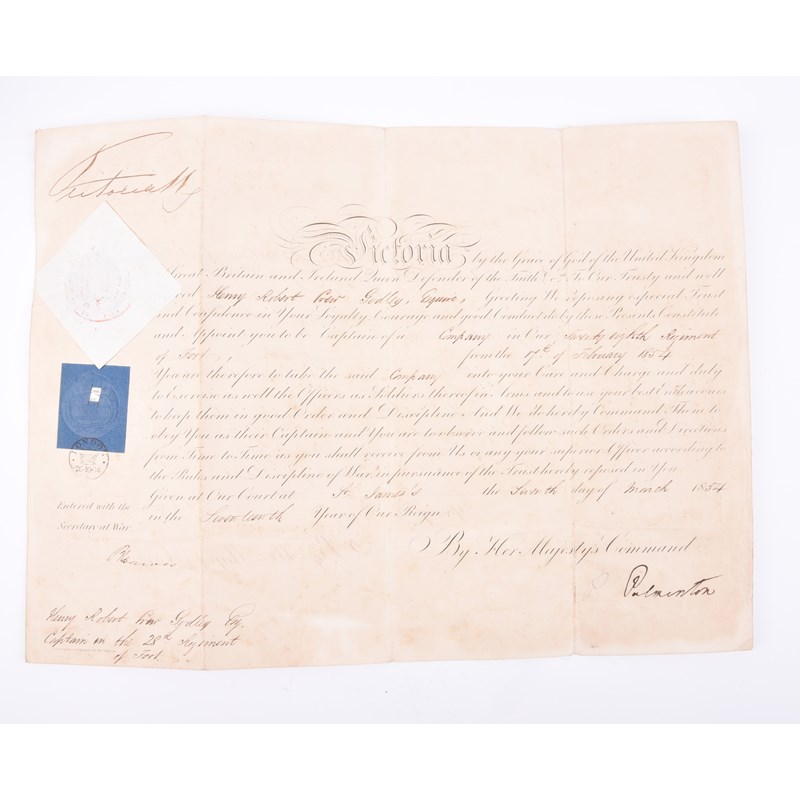 Victoria R
Victoria by the Grace of God of the United Kingdom
Great Britain and Ireland Queen Defender of the Faith &c To Our Trusty and well
Henry Robert Esquire, Greeting We reposing especial Trust
and Confidence in Your Loyalty Courage and good Conduct do by these Presents Constitute
and Appoint you to be Captain of a Company in Our Twenty eighth Regiment
of Foot, from the 17th of February 1854
You are therefore to take the said Company into your Care and Charge and duly
to Exercise as well the Officers as Soldiers thereof in Arms and to use your best Endeavours
to keep them in good Order and Discipline And We do hereby Command Them to
obey You as their Captain and You are to observe and follow such Orders and Directions
from Time to Time as you shall receive from Us or any your superior Officer according to
the Rules and Discipline of War in pursuance of the Trust hereby reposed in You
Given at Our Court at St James's the day of March 1854
in the Seventeenth Year of Our Reign
LONDON
Entered with the
Secretary at War
By Her Majesty's Command
Palmerston
Henry Robert Esq.
Captain in the 28th Regiment
of Foot